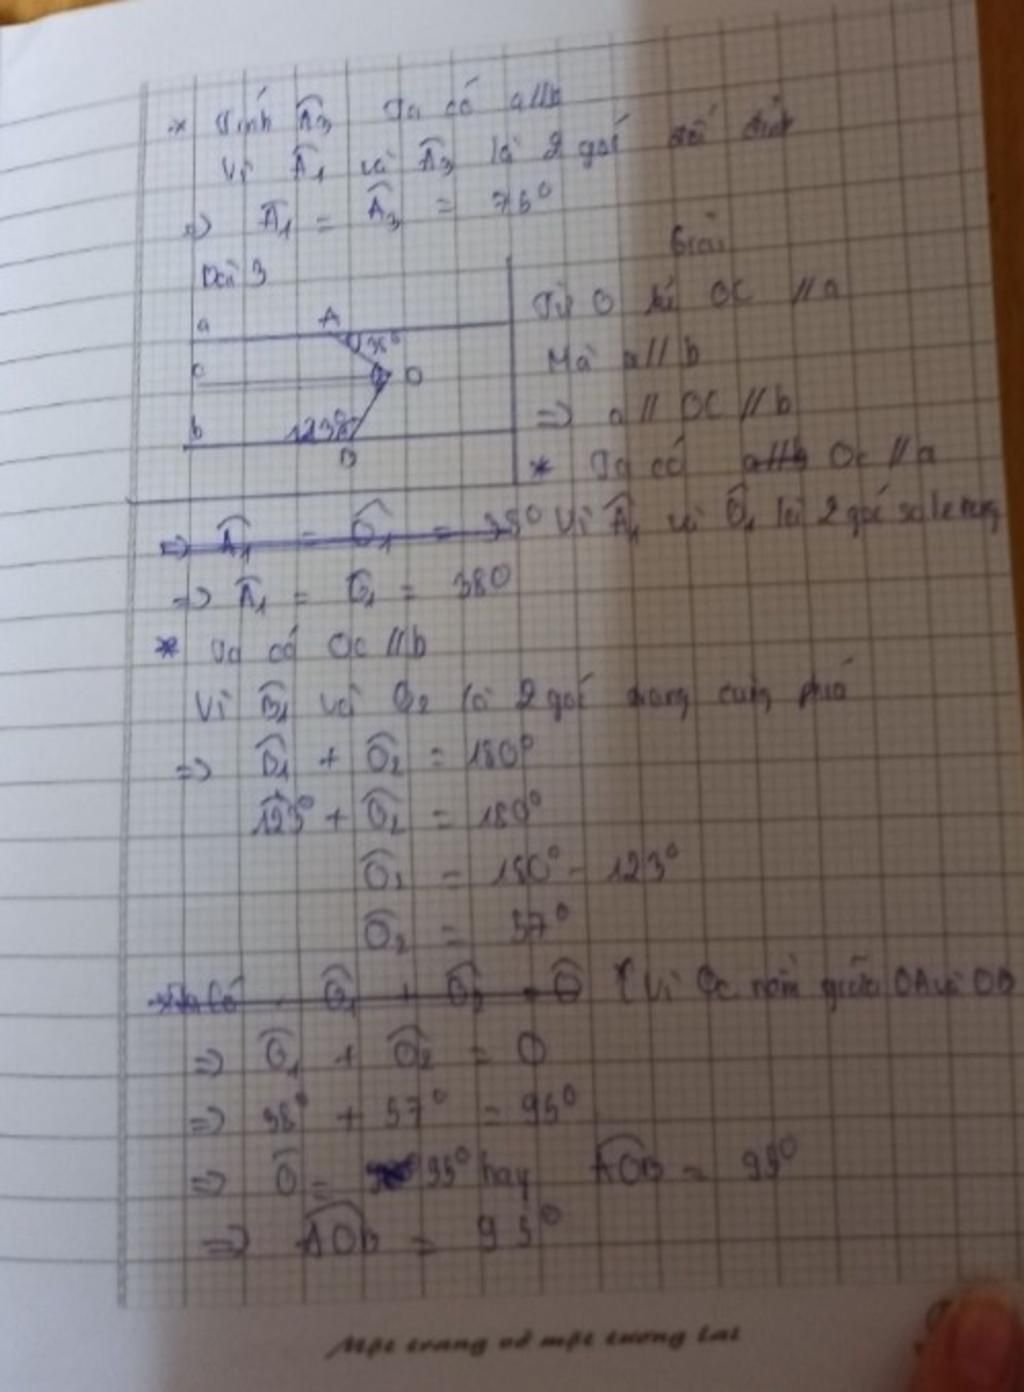 * Tính Â3 Ta có a//b
Vì Â1 và Â3 là 2 góc đối đỉnh
=> Â1 = Â3 = 76°
Bài 3
a A 38°
c O
b 123° B
Giải
Từ O kẻ OC // a
Mà a // b
=> a // OC // b
* Ta có a//b Oc // a
=> Â1 = Ô1 = 38° Vì Â1 và Ô1 là 2 góc so le trong
=> Â1 = Ô1 = 380
* Ta có Oc // b
Vì B̂1 và O2 là 2 góc trong cùng phía
=> B̂1 + Ô2 = 180°
123° + Ô2 = 180°
Ô2 = 180° - 123°
Ô2 = 57°
Ta có Ô1 + Ô2 = Ô (Vì Oc nằm giữa OA và OB
=> Ô1 + Ô2 = O
=> 38° + 57° = 95°
=> Ô = 95° hay AOB = 95°
=> AOb = 95°
Một trang vở một tương lai